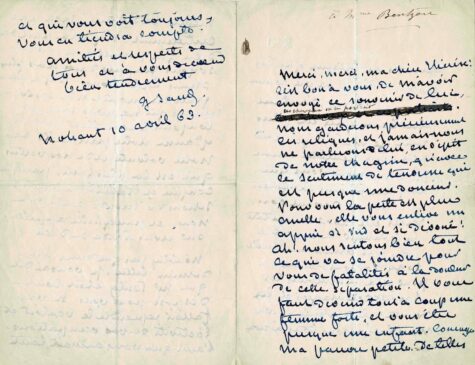 à Mme Bentzon
Merci, merci, ma chère
c'est bon à vous de m'avoir
envoyé ce souvenir de lui.
Nous garderons précieusement
ces reliques, et jamais nous
ne parlerons de lui, en dépit
de notre chagrin, qu'avec
le sentiment de tendresse qui
est presque une douceur.
Pour vous la perte est plus
cruelle, elle vous enlève un
appui si vrai et si dévoué!
Ah, nous sentons bien tout
ce qui va se joindre pour
vous de fatalités à la douleur
de cette séparation. Il vous
faut devenir tout à coup une
femme forte, et vous êtes
presque une enfant. Courage
ma pauvre petite. De telles
et qui vous voit toujours,
vous en tiendra compte.
amitiés et respects de
tous et à vous de cœur
bien tendrement
G Sand.
Nohant 10 avril 63.